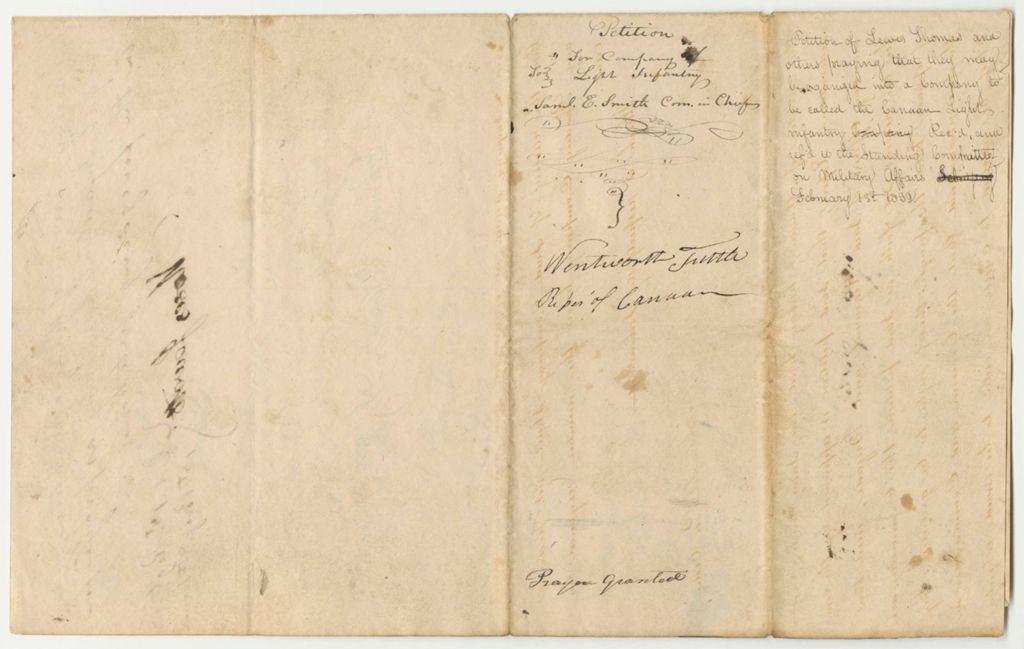 Petition
" For Company of
To } Light Infantry
Saml. E. Smith Com. in Chief
Wentworth Tuttle
Repes' of Canaan
Prayer granted
Petition of Lewis Thomas and
others praying that they may
be oganized into a Company to
be called the Canaan Light
Infantry Company Rec'd, and
ref'd to the Standing Committee
on Military Affairs
February 1st 1832